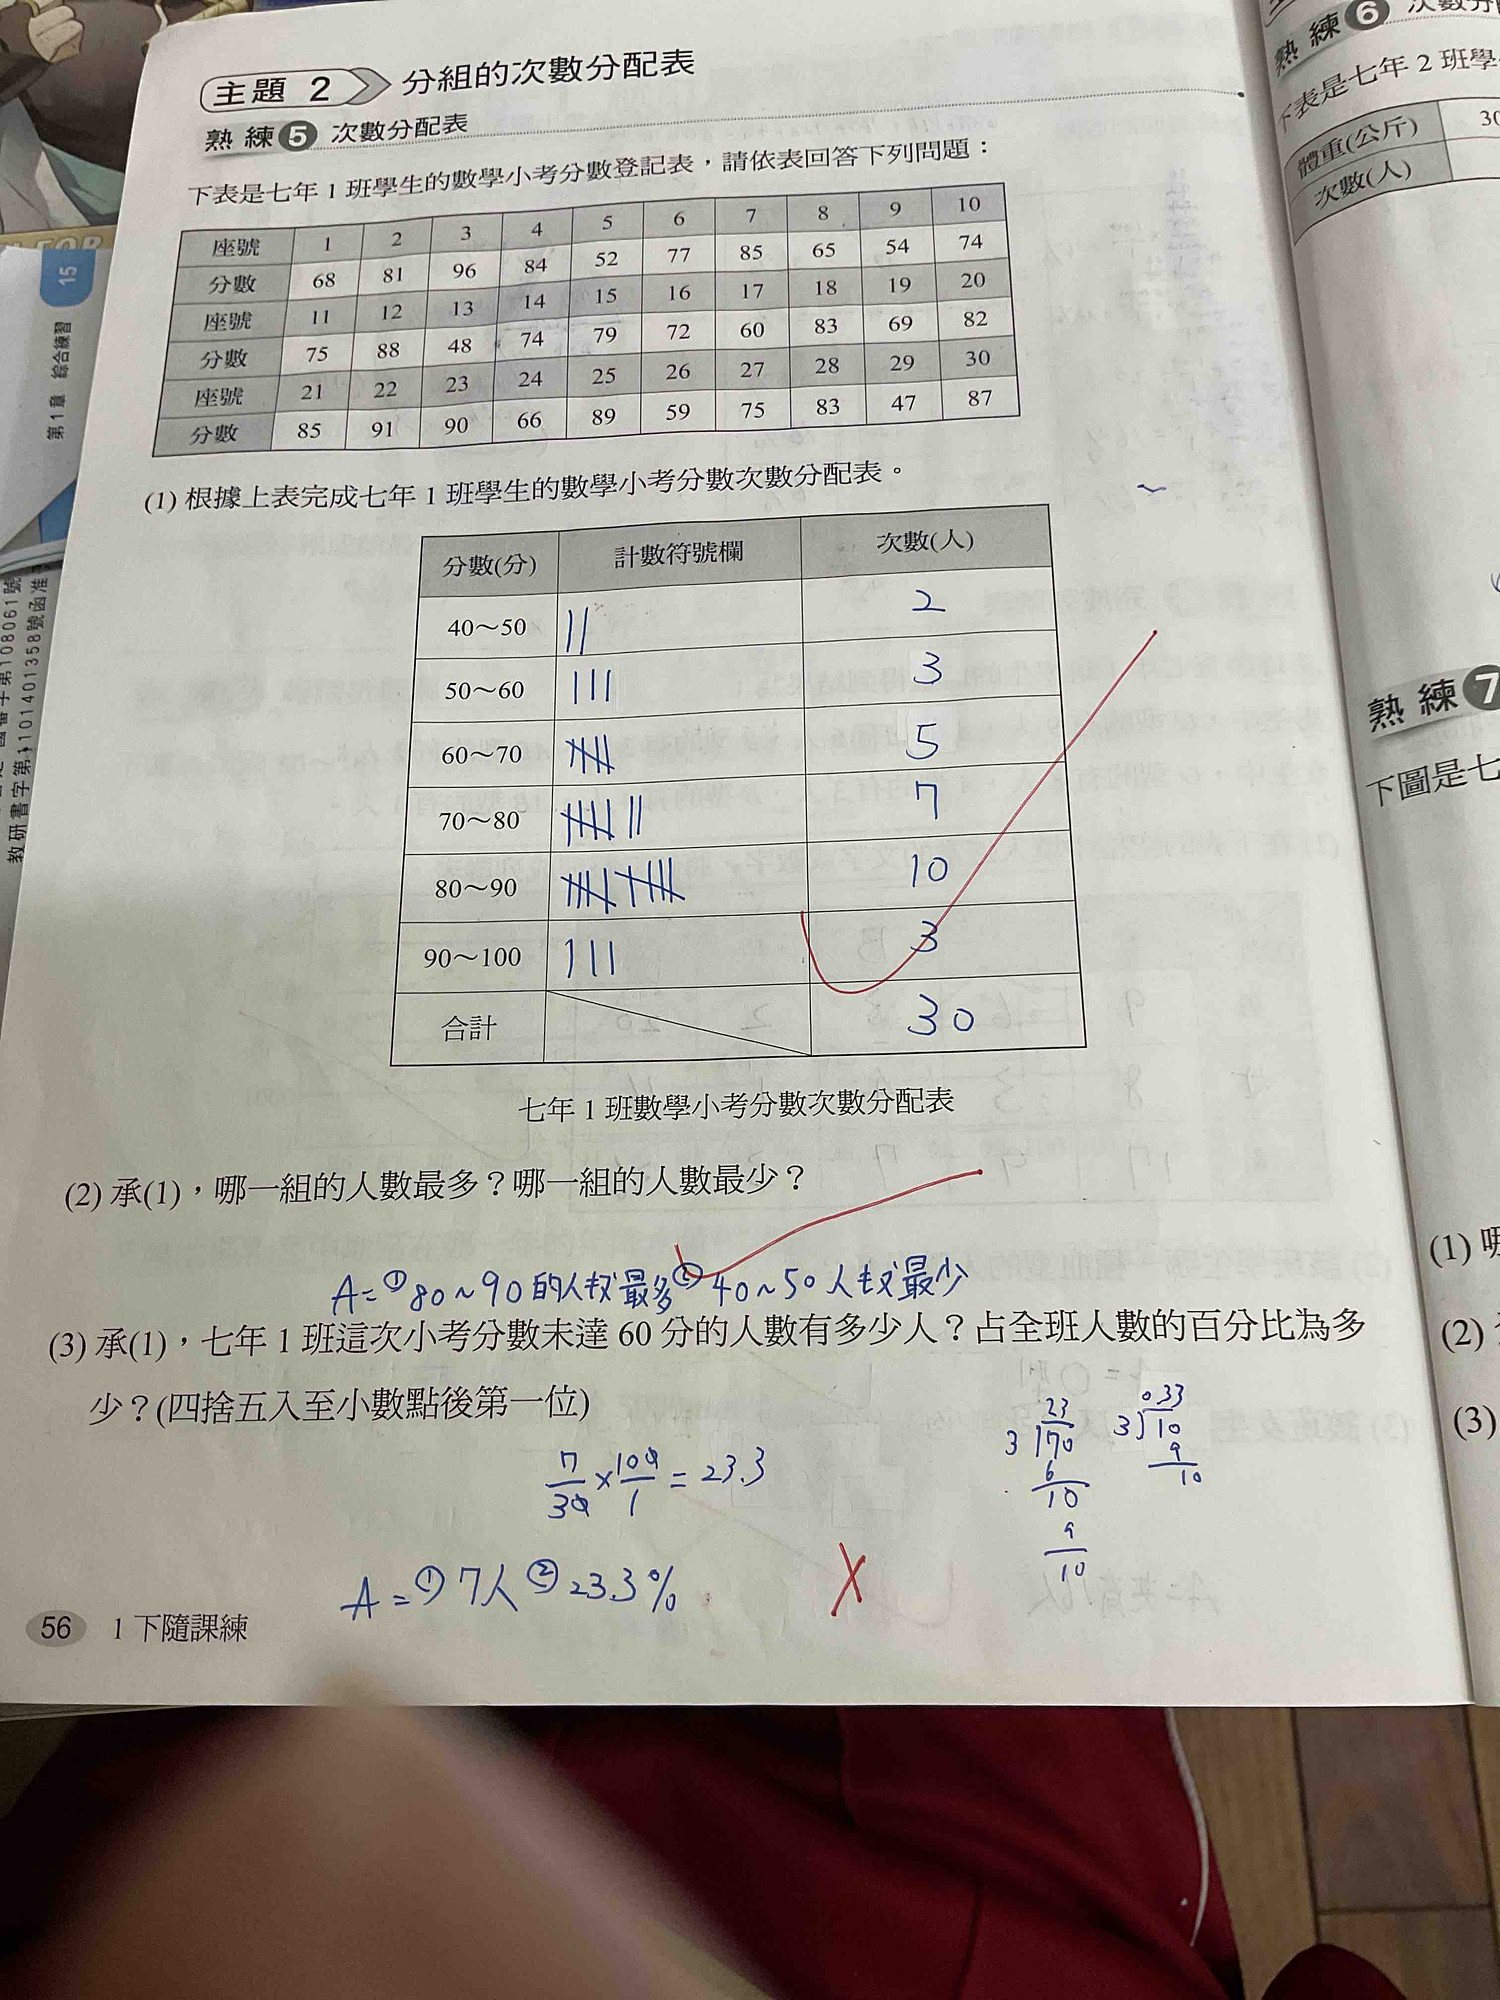 主題 2 分組的次數分配表
熟練 5 次數分配表
下表是七年 1 班學生的數學小考分數登記表，請依表回答下列問題：
座號 1 2 3 4 5 6 7 8 9 10
分數 68 81 96 84 52 77 85 65 54 74
座號 11 12 13 14 15 16 17 18 19 20
分數 75 88 48 74 79 72 60 83 69 82
座號 21 22 23 24 25 26 27 28 29 30
分數 85 91 90 66 89 59 75 83 47 87
(1) 根據上表完成七年 1 班學生的數學小考分數次數分配表。
分數(分) 計數符號欄 次數(人)
40～50 2
50～60 3
60～70 5
70～80 7
80～90 10
90～100 3
合計 30
七年 1 班數學小考分數次數分配表
(2) 承(1)，哪一組的人數最多？哪一組的人數最少？
A=①80~90的人数最多②40~50人数最少
(3) 承(1)，七年 1 班這次小考分數未達 60 分的人數有多少人？占全班人數的百分比為多
少？(四捨五入至小數點後第一位)
7/30×100/1=23.3
23
3 170
6
10
9
10
033
3 10
9
10
A=①7人②23.3%
56 1 下隨課練
15
第 1 章 綜合練習
教研書字第1101401358號函准
熟練 6 次數分
下表是七年 2 班學
體重(公斤) 30
次數(人)
熟練 7
下圖是七
(1) 哪
(2)
(3)